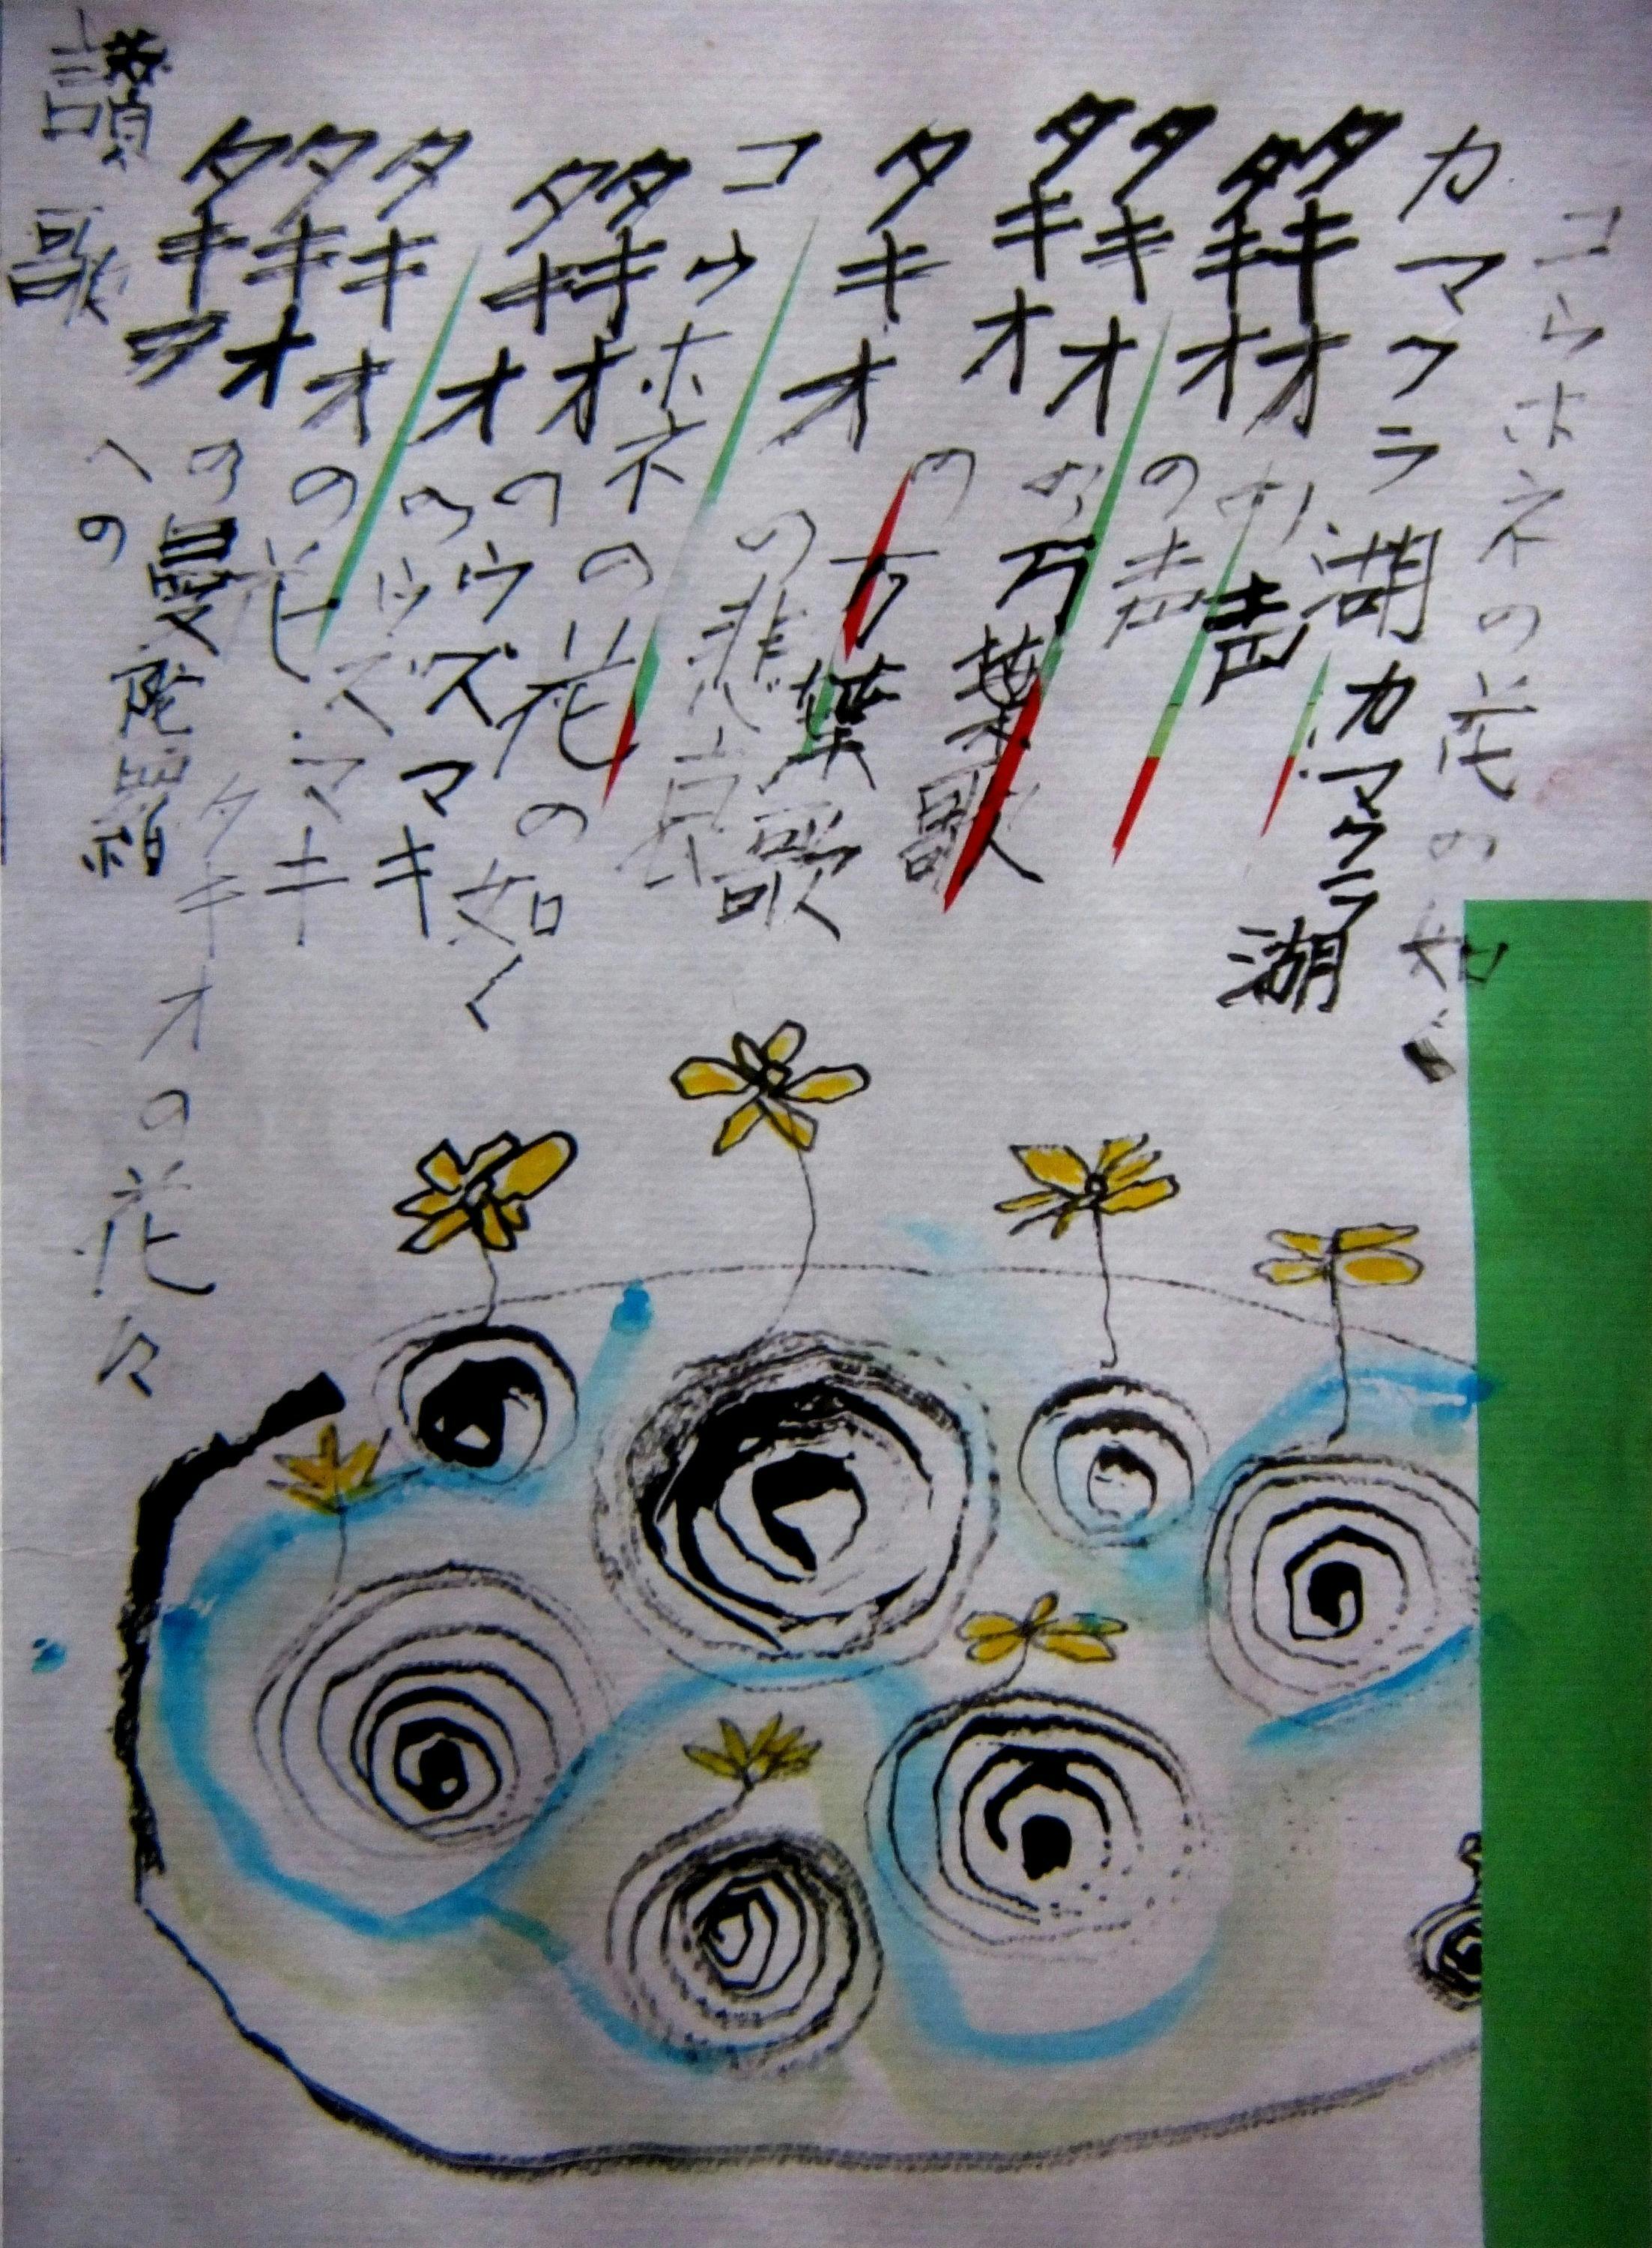 コウホネの花の如く
カマクラ湖カマクラ湖
タキオが声
タキオの声
タキオが万葉歌
タキオの万葉歌
タキオの悲哀
コウホネの花の如く
タキオのウズマキ
タキオのウズマキ
タキオの花
タキオの花々
タキオの曼陀羅
タキオへの
讃歌